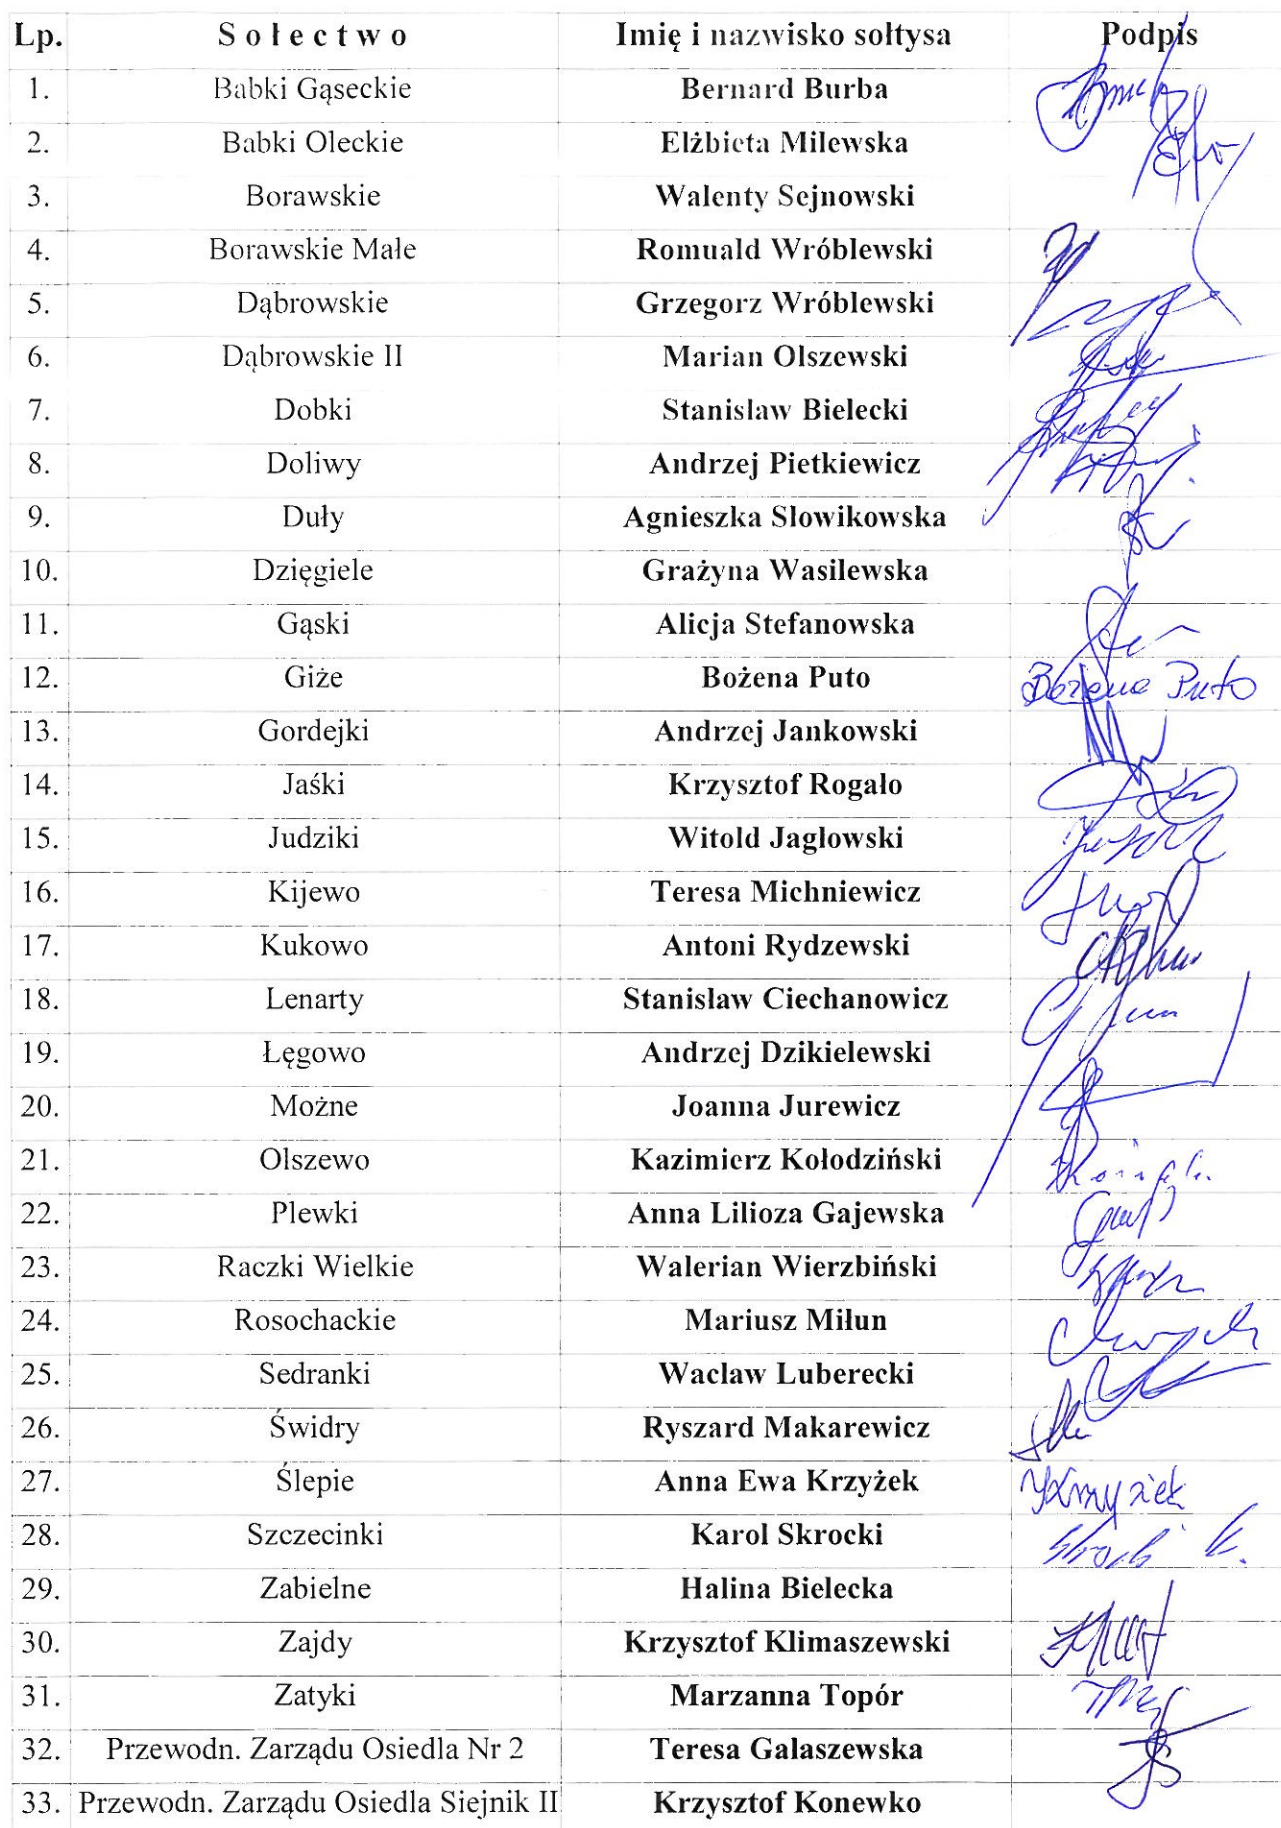 Lp. Sołectwo Imię i nazwisko sołtysa Podpis
1. Babki Gąseckie Bernard Burba
2. Babki Oleckie Elżbieta Milewska
3. Borawskie Walenty Sejnowski
4. Borawskie Małe Romuald Wróblewski
5. Dąbrowskie Grzegorz Wróblewski
6. Dąbrowskie II Marian Olszewski
7. Dobki Stanisław Bielecki
8. Doliwy Andrzej Pietkiewicz
9. Duły Agnieszka Słowikowska
10. Dzięgiele Grażyna Wasilewska
11. Gąski Alicja Stefanowska
12. Giże Bożena Puto Bożena Puto
13. Gordejki Andrzej Jankowski
14. Jaśki Krzysztof Rogało
15. Judziki Witold Jagłowski
16. Kijewo Teresa Michniewicz
17. Kukowo Antoni Rydzewski
18. Lenarty Stanisław Ciechanowicz
19. Łęgowo Andrzej Dzikielewski
20. Możne Joanna Jurewicz
21. Olszewo Kazimierz Kołodziński
22. Plewki Anna Lilioza Gajewska
23. Raczki Wielkie Walerian Wierzbiński
24. Rosochackie Mariusz Miłun
25. Sedranki Wacław Luberecki
26. Świdry Ryszard Makarewicz
27. Ślepie Anna Ewa Krzyżek
28. Szczecinki Karol Skrocki
29. Zabielne Halina Bielecka
30. Zajdy Krzysztof Klimaszewski
31. Zatyki Marzanna Topór
32. Przewodn. Zarządu Osiedla Nr 2 Teresa Galaszewska
33. Przewodn. Zarządu Osiedla Siejnik II Krzysztof Konewko